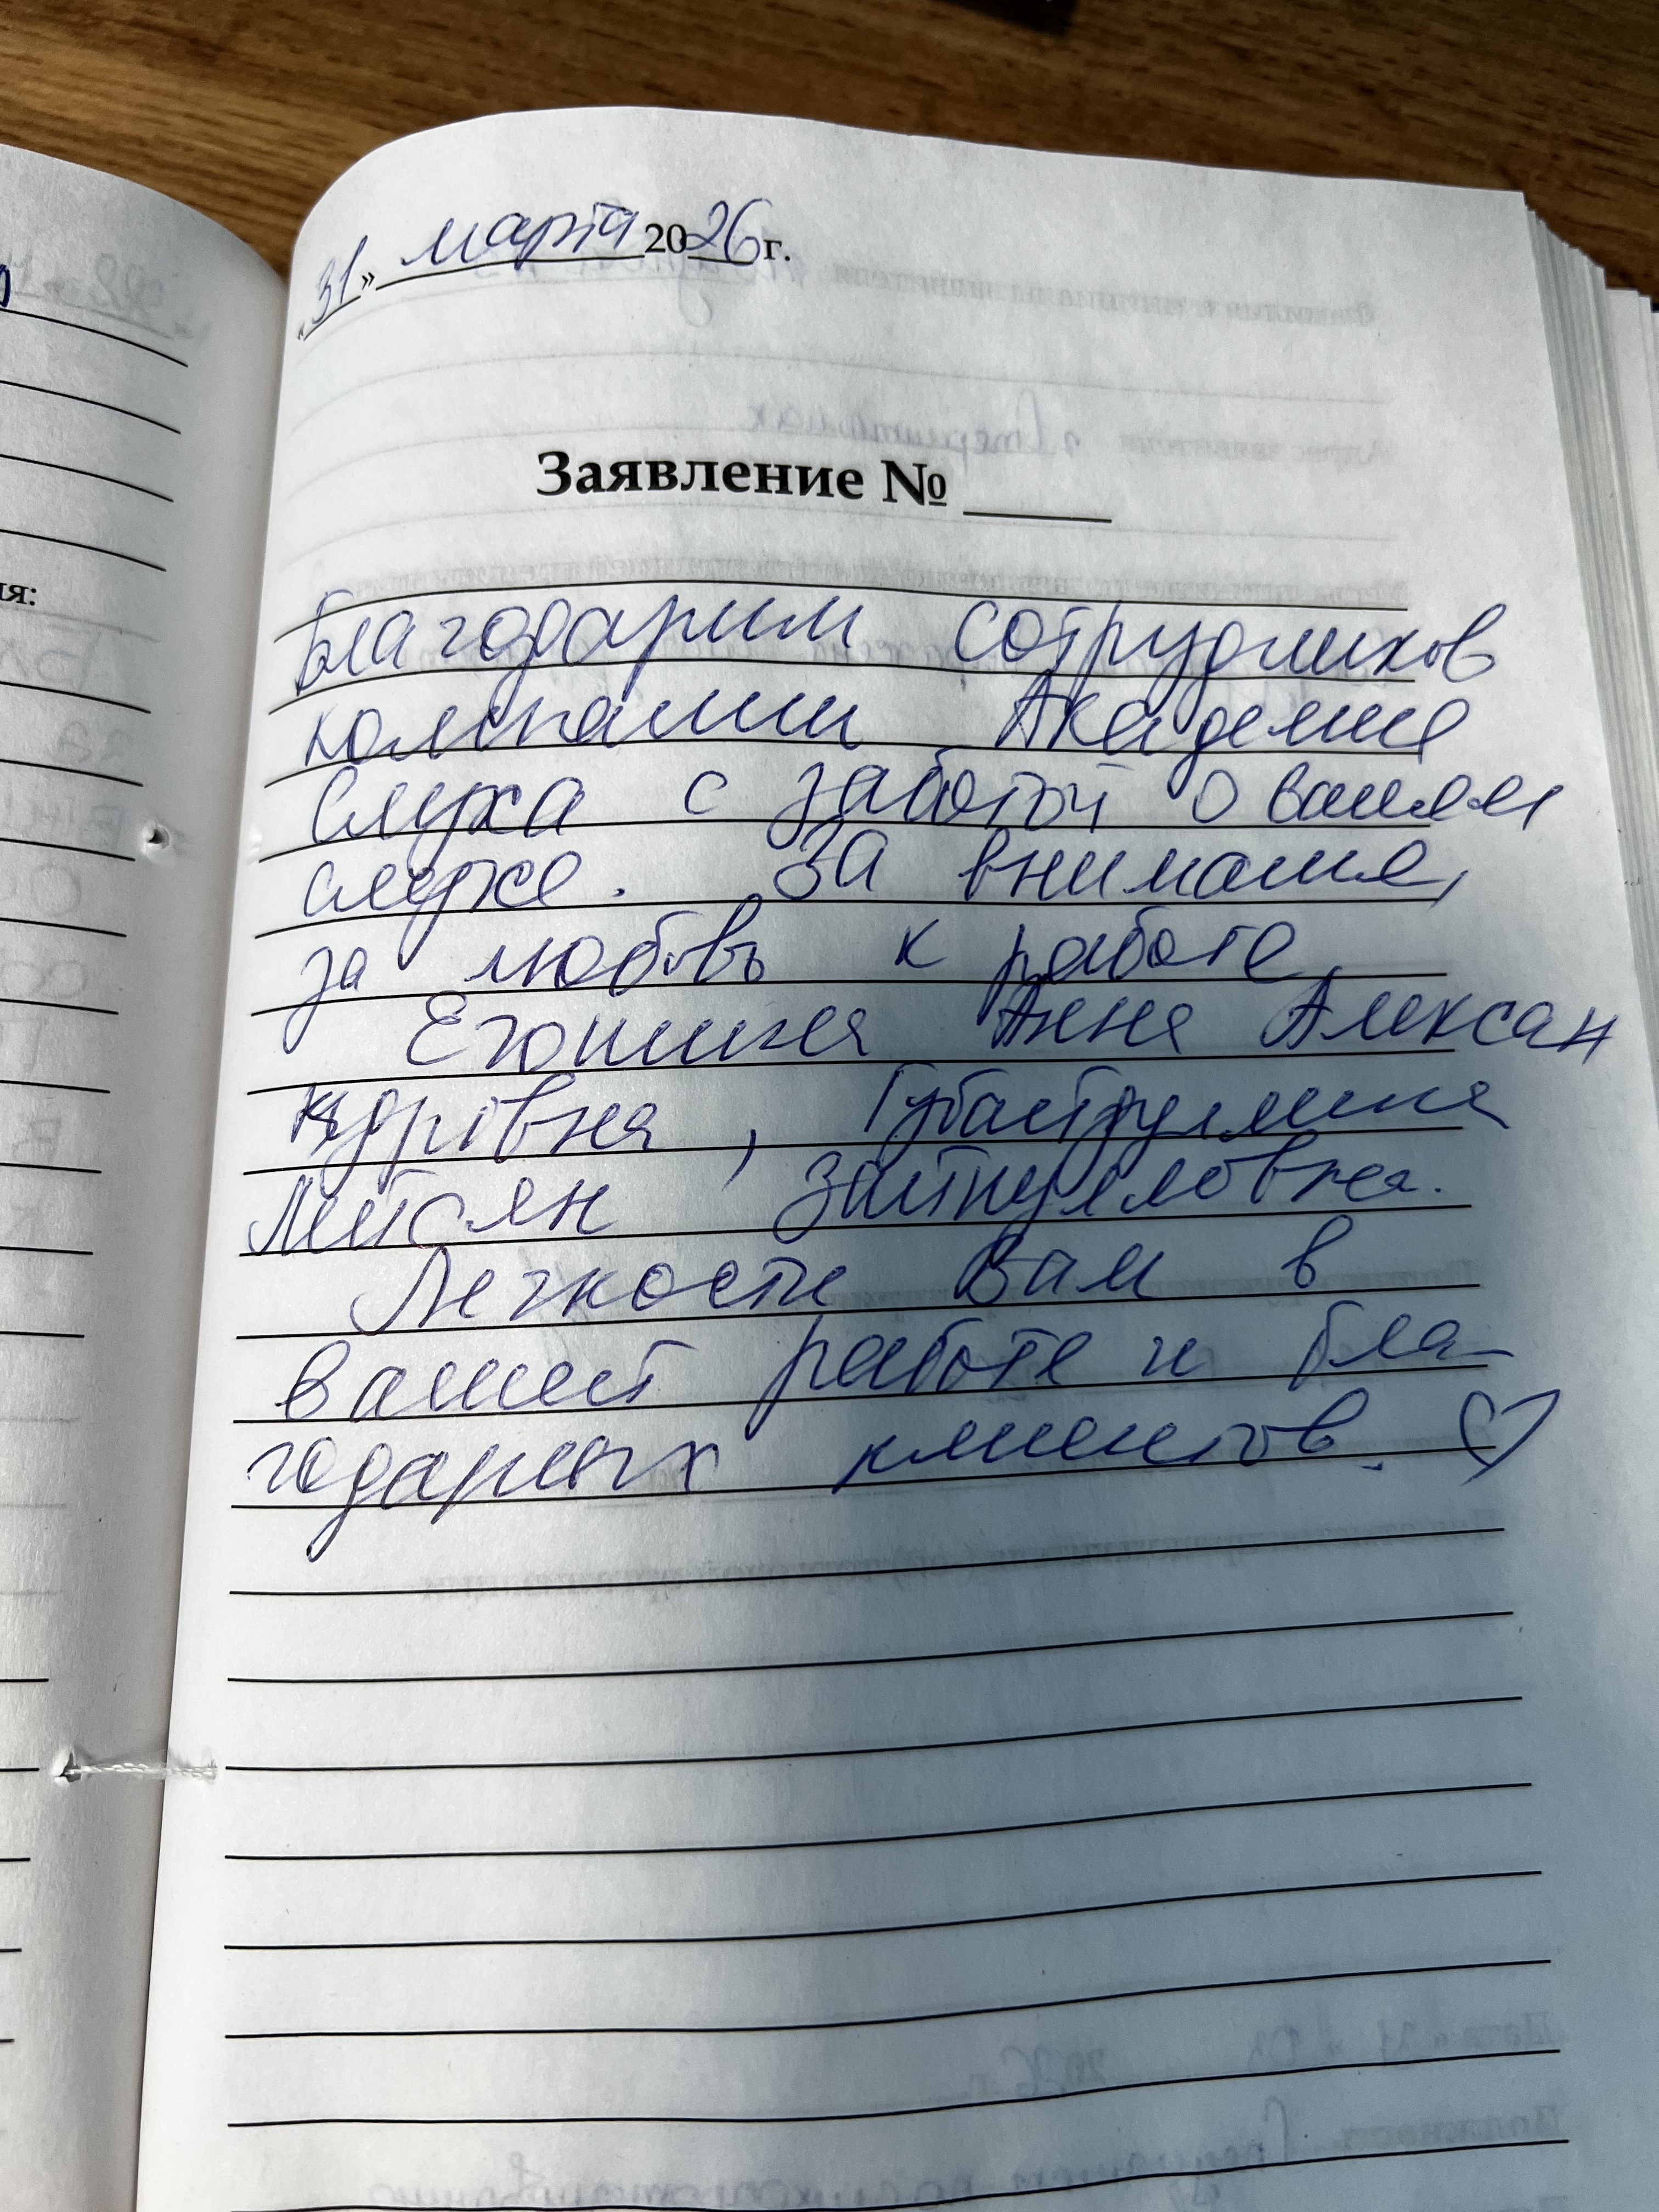 «31» марта 2026 г.
Заявление №
Благодарим сотрудников
компании Академия
Слуха с заботой о вашем
слухе. За внимание,
за любовь к работе,
Егошина Анна Алексан
ндровна, Губайдуллина
Ляйсян Зайнулловна.
Легкости Вам в
вашей работе и бла-
годарных клиентов. ♡
ия: